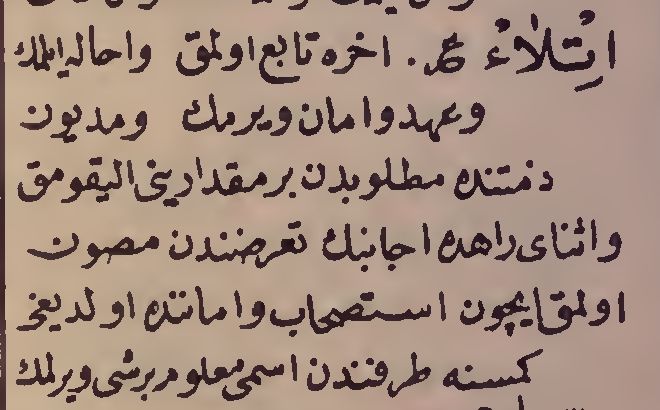 اِتْلَاءْ عر. اخره تابع اولمق واحاله ايلمك
وعهد وامان ويرمك ومديون
ذمتنده مطلوبدن بر مقدارينى اليقومق
واثناى راهده اجانبك تعرضندن مصون
اولمق ايچون استصحاب وامانتده اولديغى
كمسنه طرفندن اسمى معلوم برشى ويرلمك